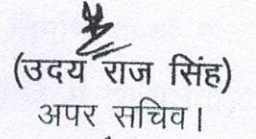 (उदय राज सिंह)
अपर सचिव।